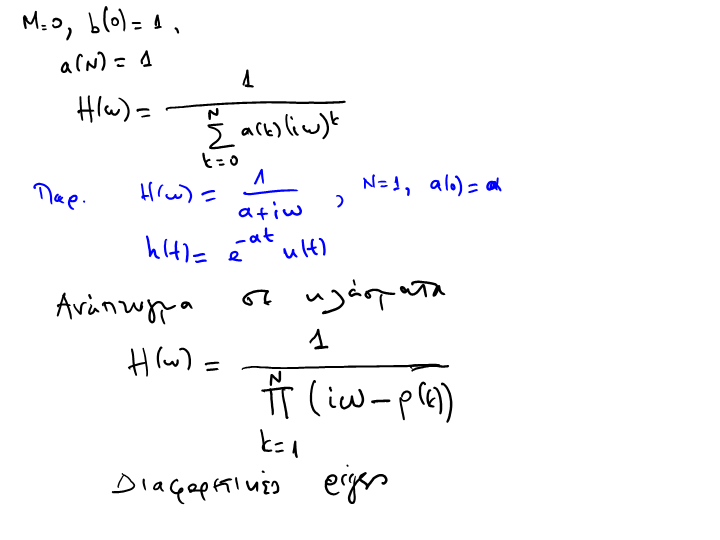 M=0, b(0)=1,
a(N) = 1
H(ω) = 1 / ∑_{k=0}^{N} a(k)(iω)^k
Παρ. H(ω) = 1 / (a+iω), N=1, a(0)=α
h(t) = e^{-at} u(t)
Ανάπτυγμα σε κλάσματα
H(ω) = 1 / ∏_{k=1}^{N} (iω - ρ(k))
Διαφορετικές ρίζες